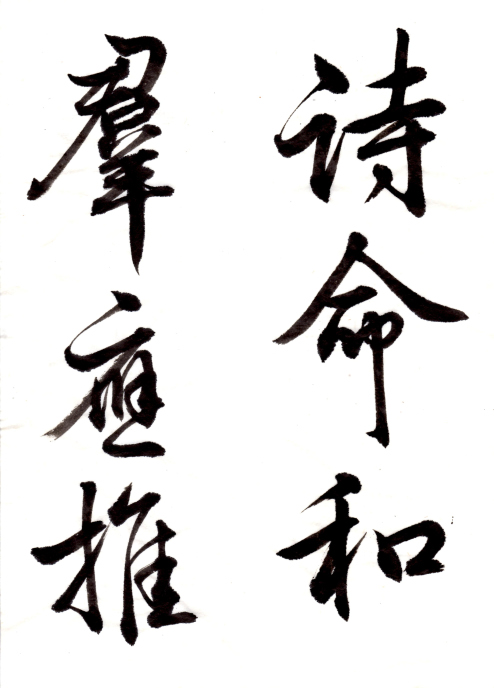 诗命和
羣應推